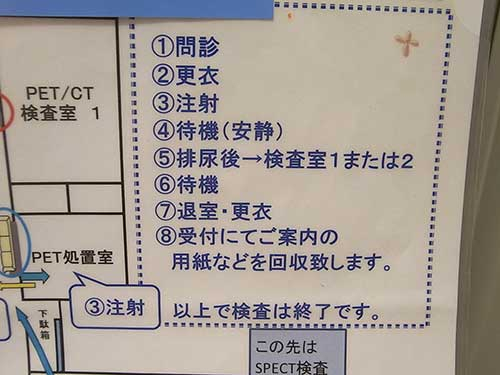 ①問診
②更衣
③注射
④待機(安静)
⑤排尿後→検査室1または2
⑥待機
⑦退室・更衣
⑧受付にてご案内の
用紙などを回収致します。
以上で検査は終了です。
PET/CT
検査室 1
PET処置室
③注射
下駄箱
この先は
SPECT検査